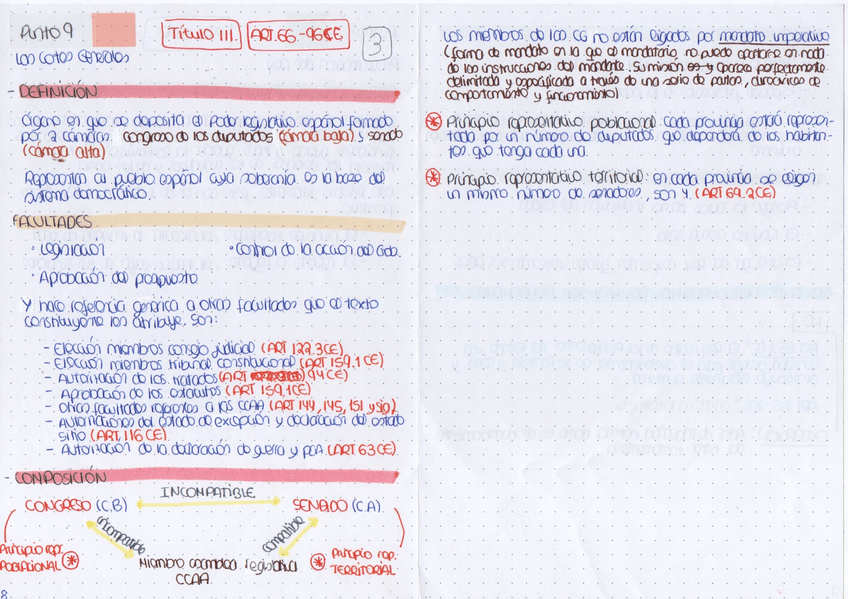 Punto 9
Título III.
ART. 66-96 CE
3
Las Cortes Generales
- DEFINICIÓN
Órgano en que se deposita el Poder legislativo español formado
por 2 cámaras: congreso de los diputados (cámara baja) y senado
(cámara alta)
Representan al pueblo español cuya soberanía es la base del
sistema democrático.
FACULTADES
· Legislación
· Control de la acción del Gob.
· Aprobación del presupuesto
Y hace referencia genérica a otras facultades que el texto
constituyente les atribuye, son:
- Elección miembros consejo judicial (ART 122.3 CE)
- Elección miembros tribunal constitucional (ART 159.1 CE)
- Autorización de los tratados (ART 94 CE)
- Aprobación de los estatutos (ART 159,1 CE)
- Otras facultades referentes a las CCAA (ART 144, 145, 151 y sig)
- Autorizaciones del estado de excepción y declaración del estado
sitio (ART. 116 CE)
- Autorización de la declaración de guerra y paz (ART 63 CE)
- COMPOSICIÓN
INCOMPATIBLE
CONGRESO (C.B)
SENADO (C.A)
incompatible
compatible
Principio rep.
POBLACIONAL *
Miembro asamblea legislativa
CCAA
* Principio rep.
TERRITORIAL
8
Los miembros de las CG no están ligados por mandato imperativo
(forma de mandato en la que el mandatario no puede apartarse en nada
de las instrucciones del mandante. Su misión es y aparece perfectamente
delimitada y especificada a través de una serie de pautas, directrices de
comportamiento y funcionamiento)
* Principio representativo poblacional: cada provincia estará represen-
tada por un número de diputados que dependerá de los habitan-
tes que tenga cada una.
* Principio representativo territorial: en cada provincia se eligen
un mismo número de senadores, son 4. (ART 69.2 CE)